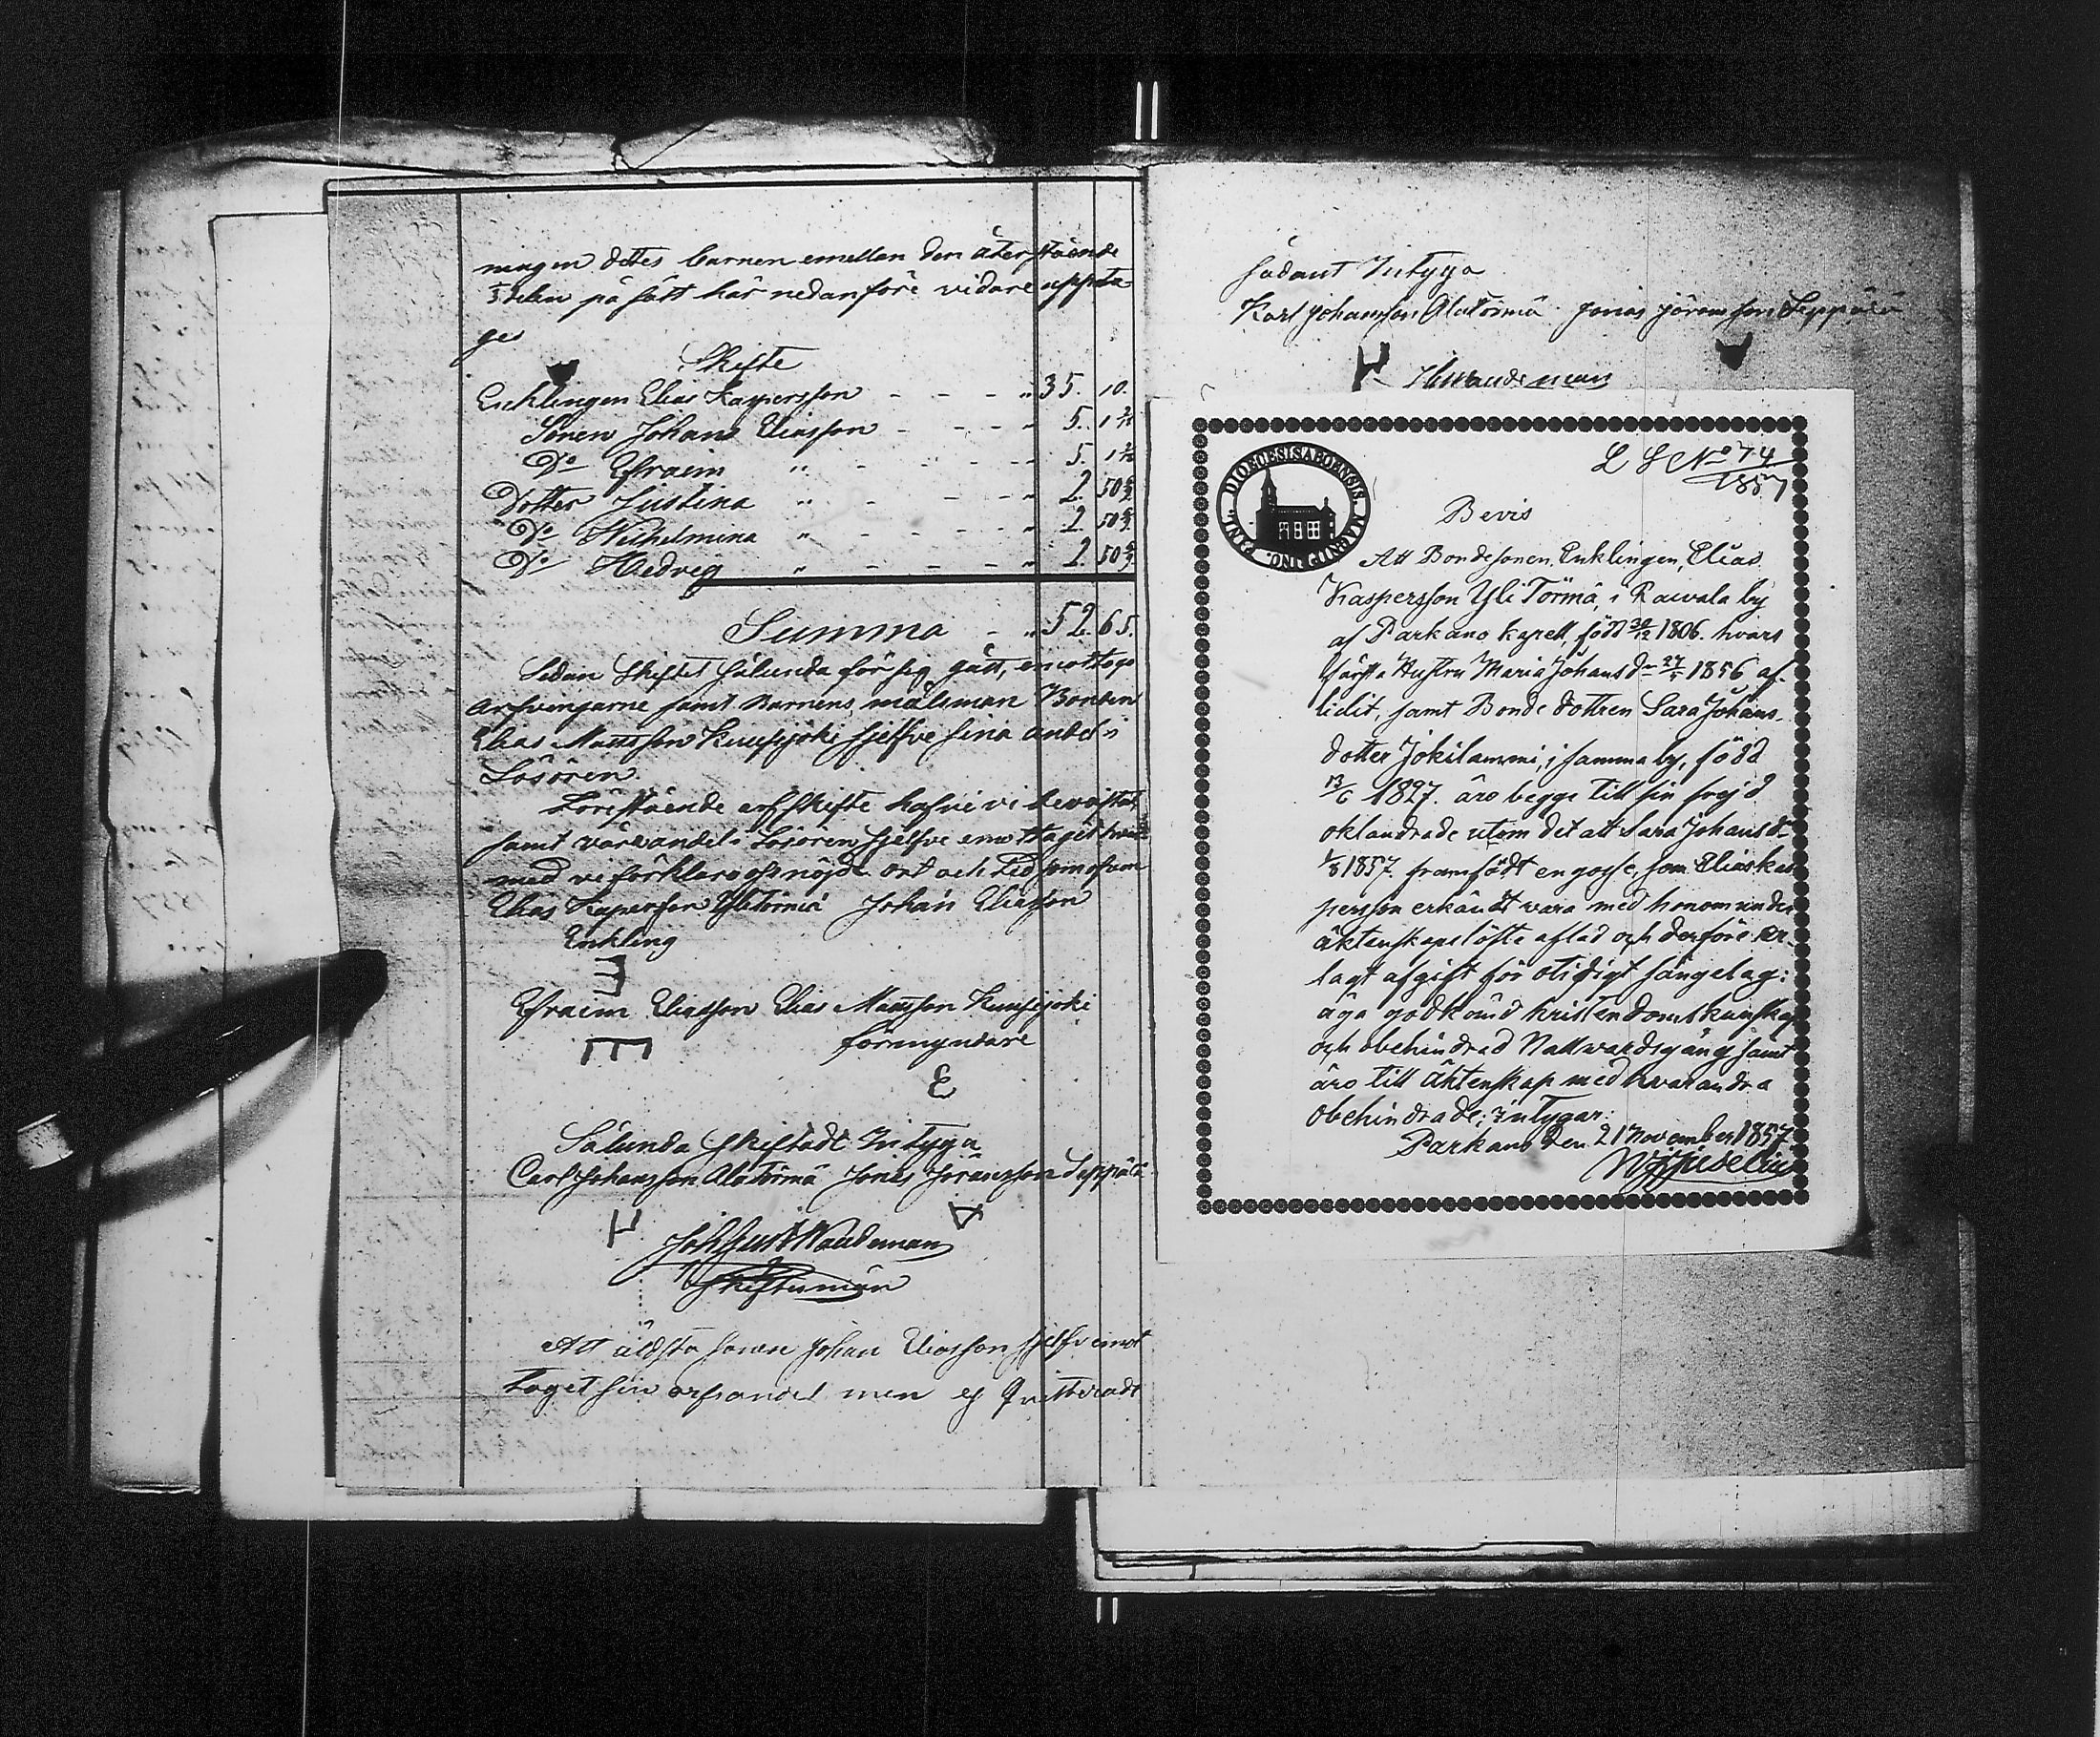 ningen deltes barnen emellan den återstående
1/3 delen på sätt här nedanföre vidare uppta-
ges
Skifte
Encklingen Elias Kaspersson - - - " 35. 10.
Sonen Johan Eliasson - - - " 5. 1
Do Efraim " - - - " 5. 1
Dotter Justina " - - - " 2. 50
Do Wilhelmina " - - - " 2. 50
Do Hedvig " - - - " 2. 50
Summa - " 52. 65.
Sedan Skiftet sålunda för sig gått, emottogo
arfvingarne samt Barnens målsman Bonden
Elias Mattsson Kuusijoki sjelfve sina andel i
Lösören.
Förestående arfskifte hafve vi bevistat
samt vår andel i Lösören sjelfve emottagit hvar
med vi förklara oss nöjde ort och tid som ofvan
Elias Kaspersson Ylitörmä Johan Eliasson
Enkling
Efraim Eliasson Elias Mattsson Kuusijoki
förmyndare
Sålunda skiftadt Intyga
Carl Johansson Alatörmä Jonas Jöransson Seppälä
Joh Gust Wandeman
Skiftesman
Att äldsta sonen Johan Eliasson sjelf emot
taget sin arfsandel men ej qvitteradt
sådant Intyga
Karl Johansson Alatörmä Jonas Jöransson Seppälä
Wandeman
L S No 74
1857
Bevis
Att Bondesonen, Enklingen, Elias
Kaspersson Yli Törmä, i Rawala by
af Parkano kapell, född 30/12 1806. hvars
förra Hustru Maria Johansdr 27/5 1856 af-
lidit, samt Bonde dottren Sara Johans-
dotter Jokilammi, i samma by, född
13/6 1827. äro begge till sin frejd
oklandrade utom det att Sara Johansdr
1/8 1857. framfödt en gosse, som Elias Kas-
persson erkändt vara med honom under
äktenskapslöfte aflad och derföre er-
lagt afgift för otidigt sängelag:
äga godkänd kristendomskunskap
och obehindrad Nattvardsgång samt
äro till äktenskap med hvarandra
obehindrade; intygar:
Parkano den 21 November 1857